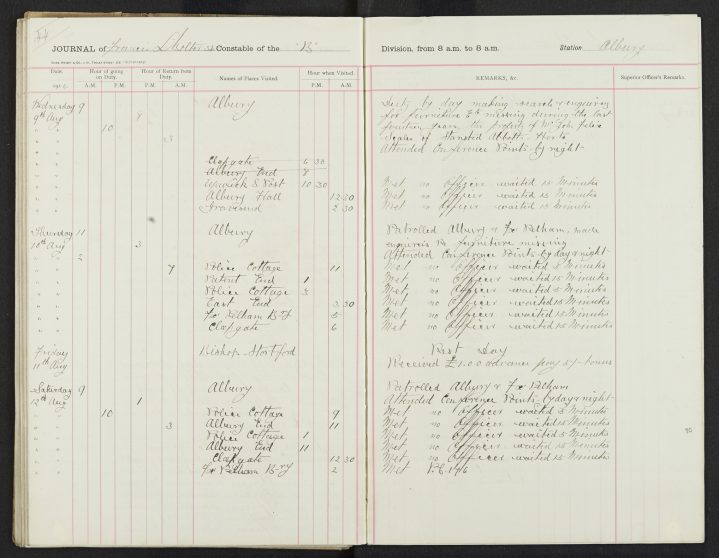 JOURNAL of Francis L Constable of the "B" Division, from 8 a.m. to 8 a.m. Station Albury
Date. Hour of going on Duty. Hour of Return from Duty. Names of Places Visited. Hour when Visited. REMARKS, &c. Superior Officer's Remarks.
A.M. P.M. P.M. A.M. P.M. A.M.
Wednesday 9 Albury Duty by day making search & enquiries
9th Aug 8 for furniture &c missing during the last
" " 10 fourteen years the property of Mr John Felix
" " 3 Scales of Stansted Abbotts Herts
" " Attended Conference Points by night
" " Clapgate 6 30
" " Albury End 8
" " Warwick S Post 10 30 Met no Officer waited 15 Minutes
" " Albury Hall 12 30 Met no Officer waited 15 Minutes
" " Gravesend 2 30 Met no Officer waited 15 Minutes
Thursday 11 Albury Patrolled Albury & Fx Pelham, made
10th Aug 3 enquiries re furniture missing
" " 2 Attended Conference Points by day & night
" " 7 Police Cottage 11 Met no Officer waited 5 Minutes
" " Patient End 1 Met no Officer waited 15 Minutes
" " Police Cottage 3 Met no Officer waited 5 Minutes
" " East End 3 30 Met no Officer waited 15 Minutes
" " Fx Pelham Bry 5 Met no Officer waited 15 Minutes
" " Clapgate 6 Met no Officer waited 15 Minutes
Friday Bishop Stortford Rest Day
11th Aug Received £1.0.0 advance pay 5/- bonus
Saturday 9 Albury Patrolled Albury & Fx Pelham
12th Aug 1 Attended Conference Points by day & night
" " 10 Police Cottage 9 Met no Officer waited 5 Minutes
" " 3 Albury End 11 Met no Officer waited 15 Minutes
" " Police Cottage 1 Met no Officer waited 5 Minutes
" " Albury End 11 Met no Officer waited 15 Minutes
" " Clapgate 12 30 Met no Officer waited 15 Minutes
" " Fx Pelham Bry 2 Met P.C. 196